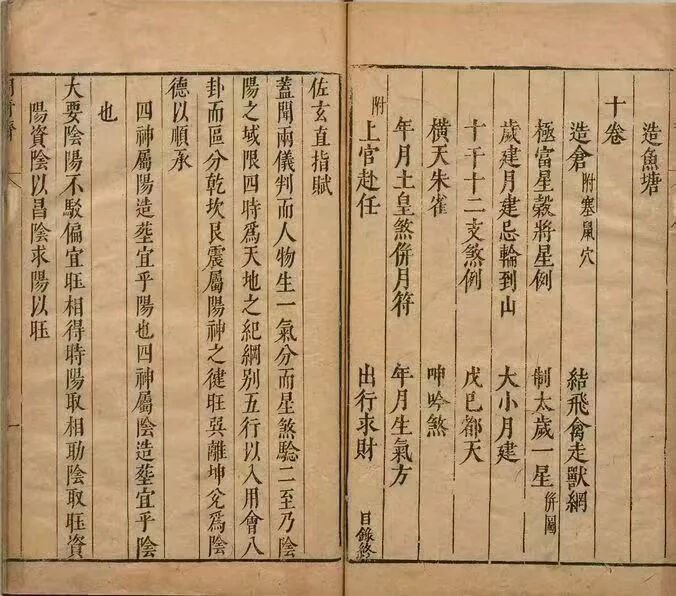 造魚塘
十卷
造倉 附塞鼠穴 結飛禽走獸網
極富星穀將星例 制太歲一星 併圖
歲建月建忌輪到山 大小月建
十干十二支煞例 戊己都天
橫天朱雀 呻吟煞
年月土皇煞併月符 年月生氣方
附上官赴任 出行求財 目錄終
佐玄直指賦
蓋聞兩儀判而人物生一氣分而星煞騐二至乃陰
陽之域限四時爲天地之紀綱別五行以入用會八
卦而區分乾坎艮震屬陽神之健旺巽離坤兌爲陰
德以順承
四神屬陽造塟宜乎陽也四神屬陰造塟宜乎陰
也
大要陰陽不駁偏宜旺相得時陽取相助陰取旺資
陽資陰以昌陰求陽以旺
一